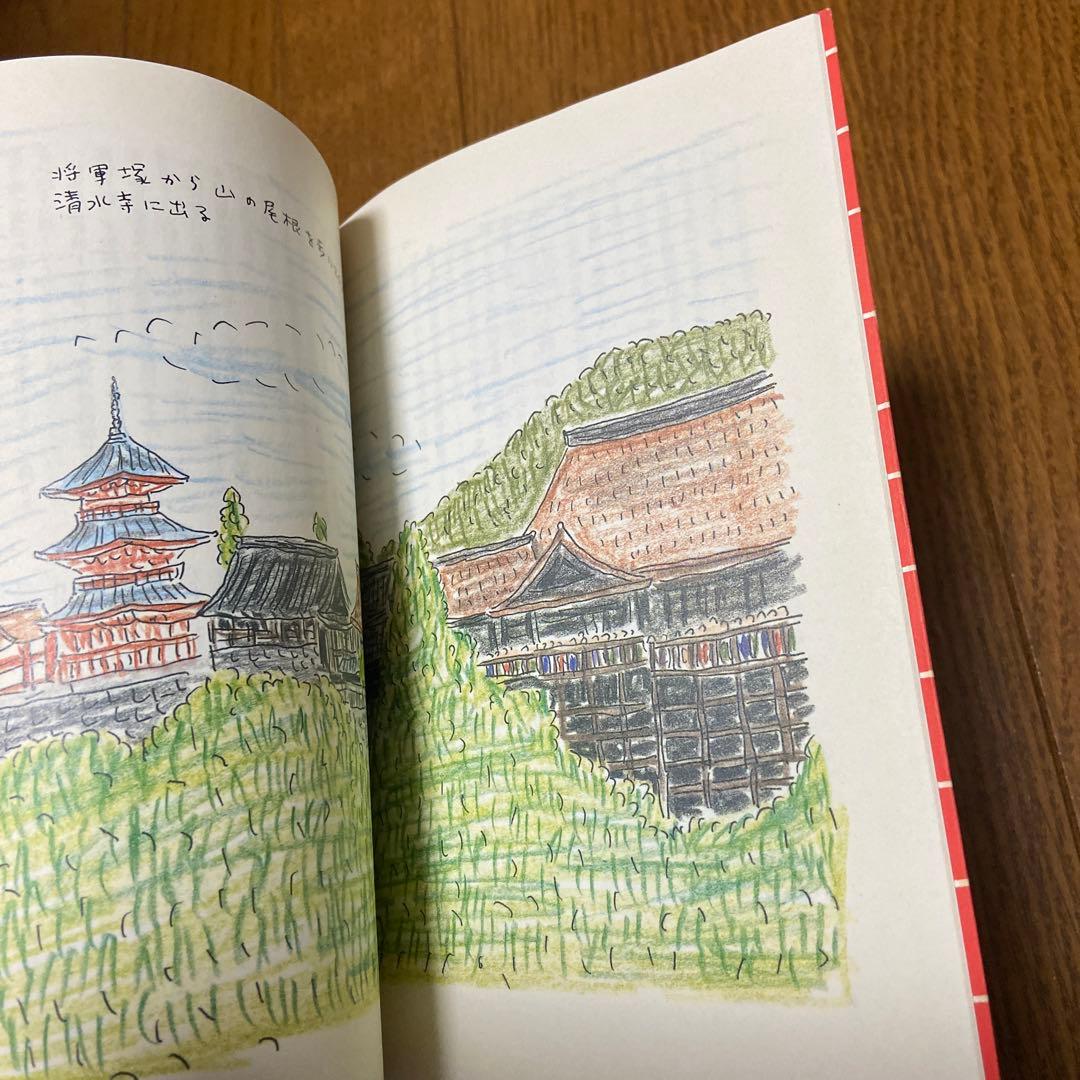 将軍塚から山の尾根を
清水寺に出る